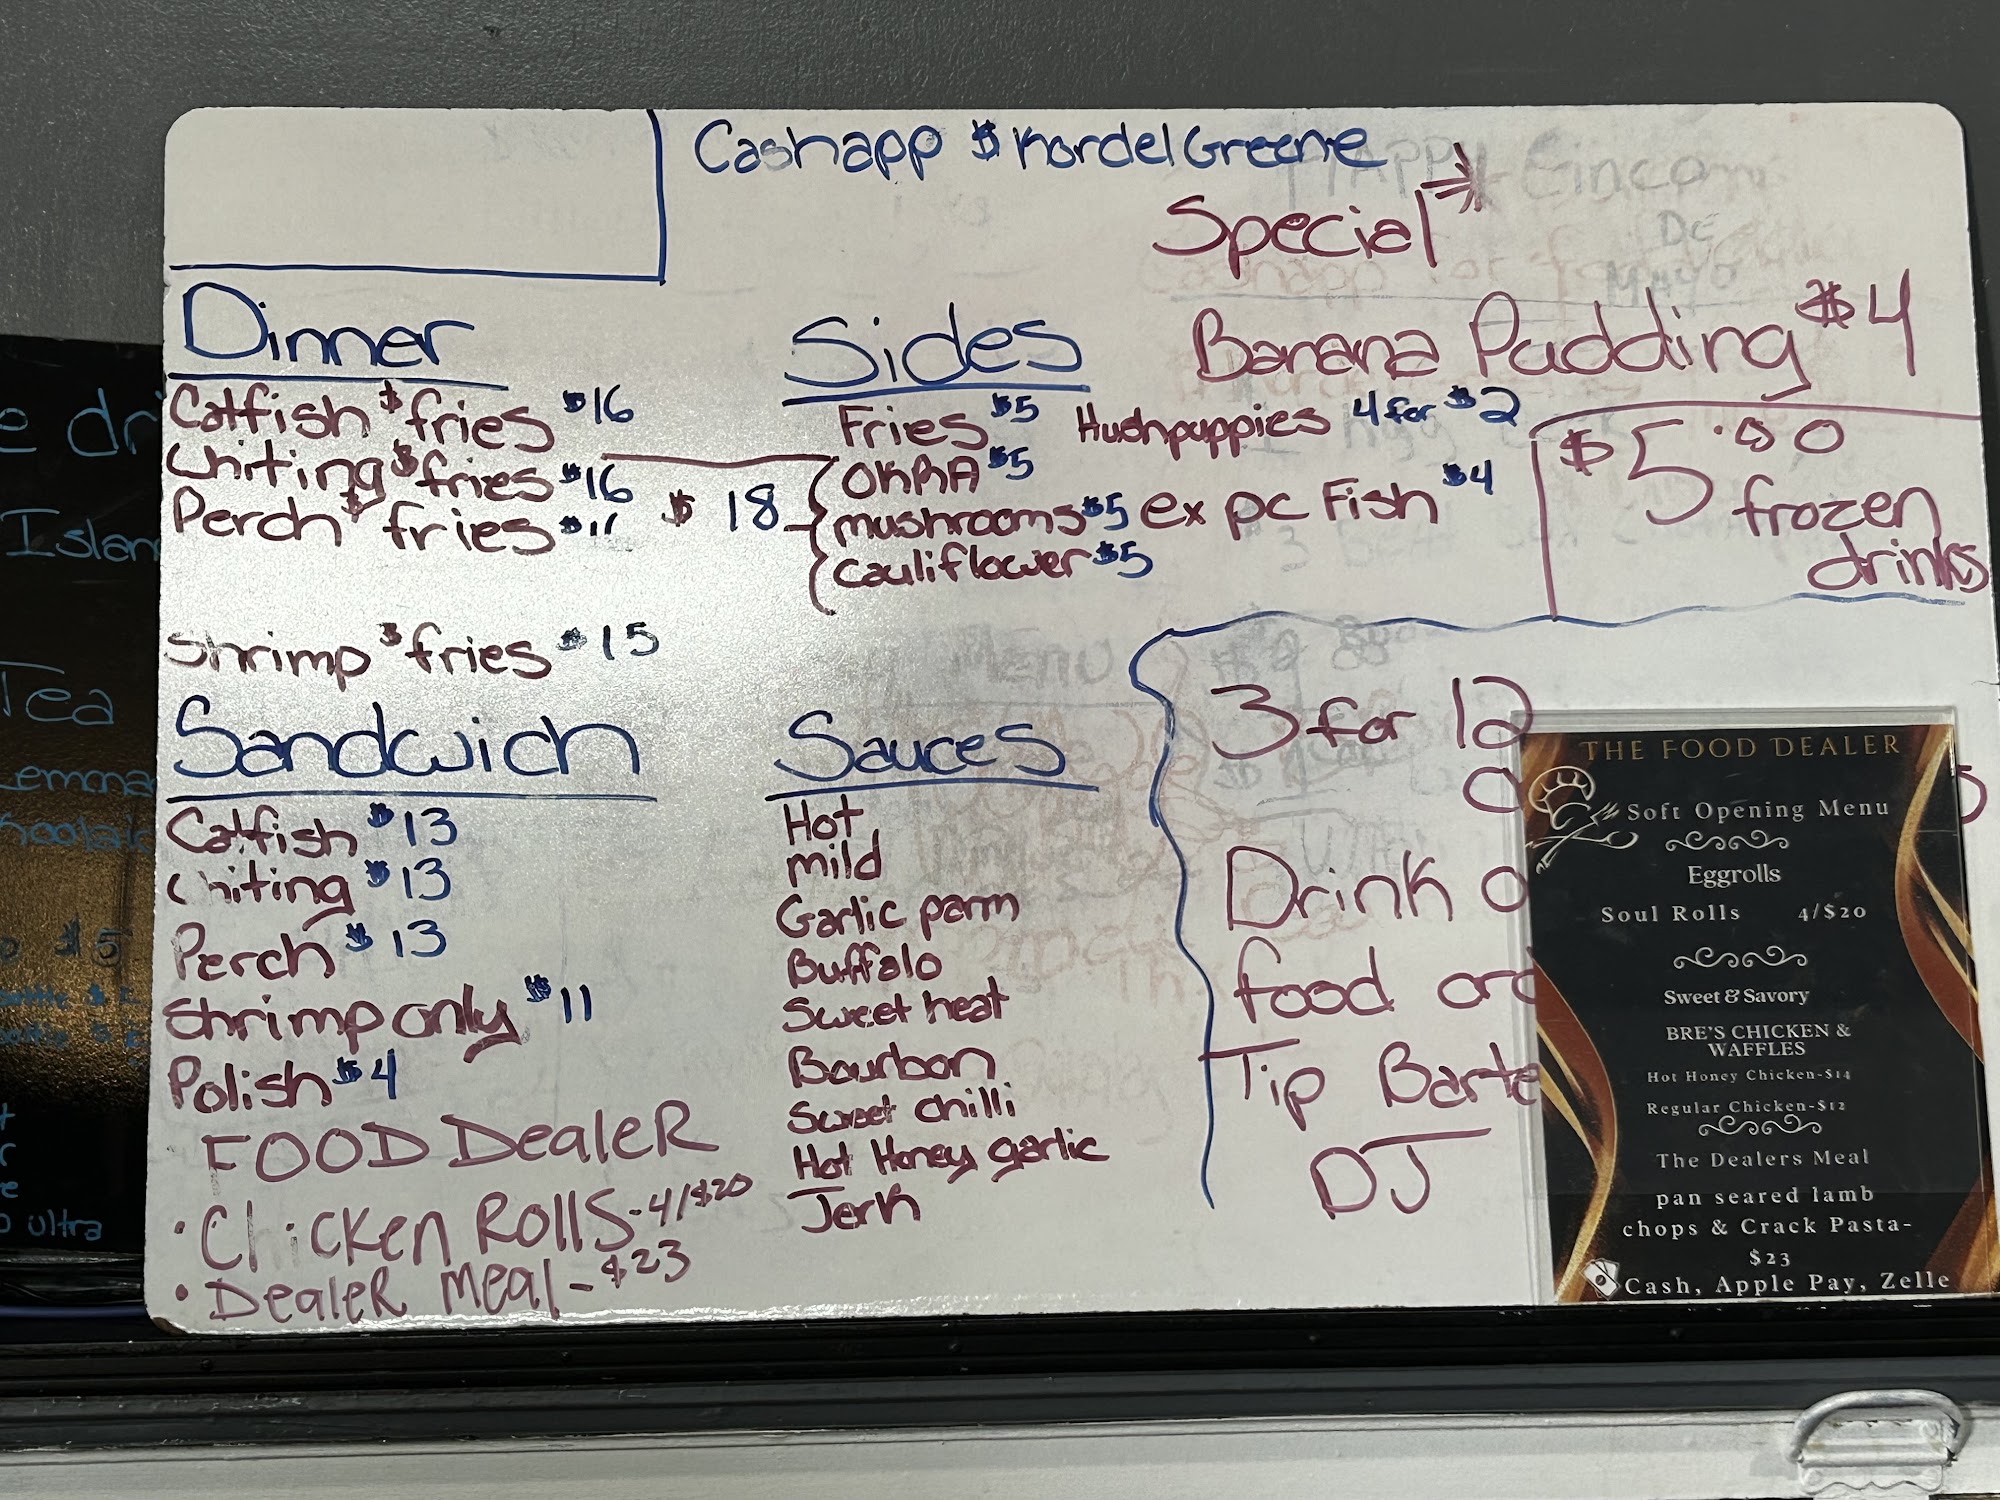 Cashapp $KordelGreene
Special
Banana Pudding $4
Dinner
Catfish $ fries $16
Whiting $ fries $16
Perch $ fries $11
$18
Shrimp $ fries $15
Sides
Fries $5
OKRA $5
mushrooms $5
cauliflower $5
Hushpuppies 4 for $2
ex pc Fish $4
$5.00
frozen
drinks
Sandwich
Catfish $13
Whiting $13
Perch $13
Shrimp only $11
Polish $4
FOOD DealeR
• Chicken Rolls - 4/$20
• DealeR meal - $23
Sauces
Hot
mild
Garlic parm
Buffalo
Sweet heat
Bourbon
Sweet chilli
Hot Honey garlic
Jerk
3 for 12
Drink
food
Tip
DJ
THE FOOD DEALER
Soft Opening Menu
Eggrolls
Soul Rolls 4/$20
Sweet & Savory
BRE'S CHICKEN &
WAFFLES
Hot Honey Chicken-$14
Regular Chicken-$12
The Dealers Meal
pan seared lamb
chops & Crack Pasta-
$23
Cash, Apple Pay, Zelle
Tea
ultra